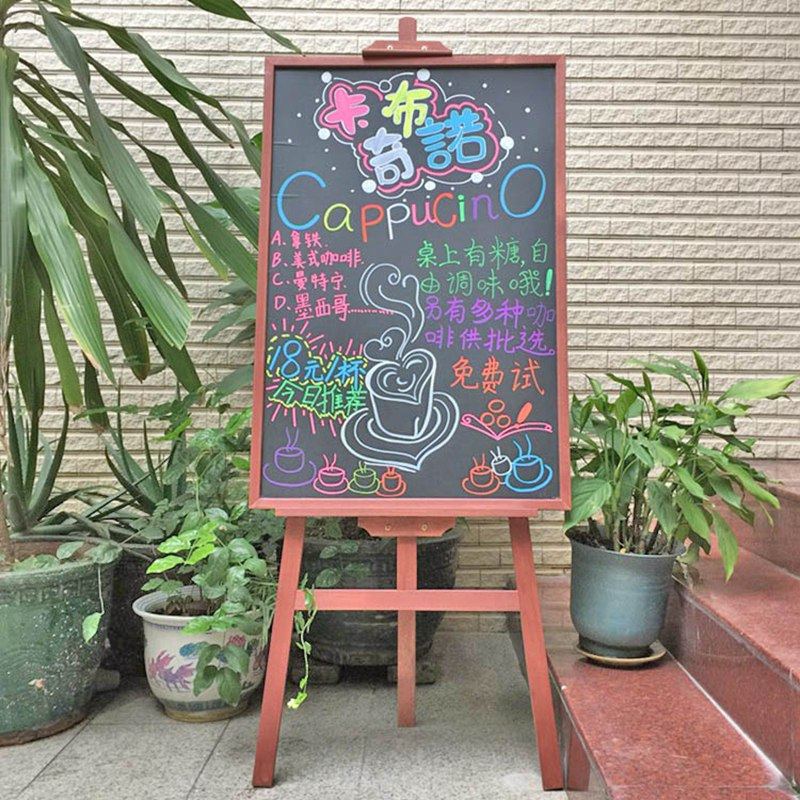 卡布
奇諾
Cappucino
A.拿铁.
B.美式咖啡.
C.曼特宁
D.墨西哥……
桌上有糖,自
由调味哦!
另有多种咖
啡供批选。
18元/杯
今日推荐
免费试